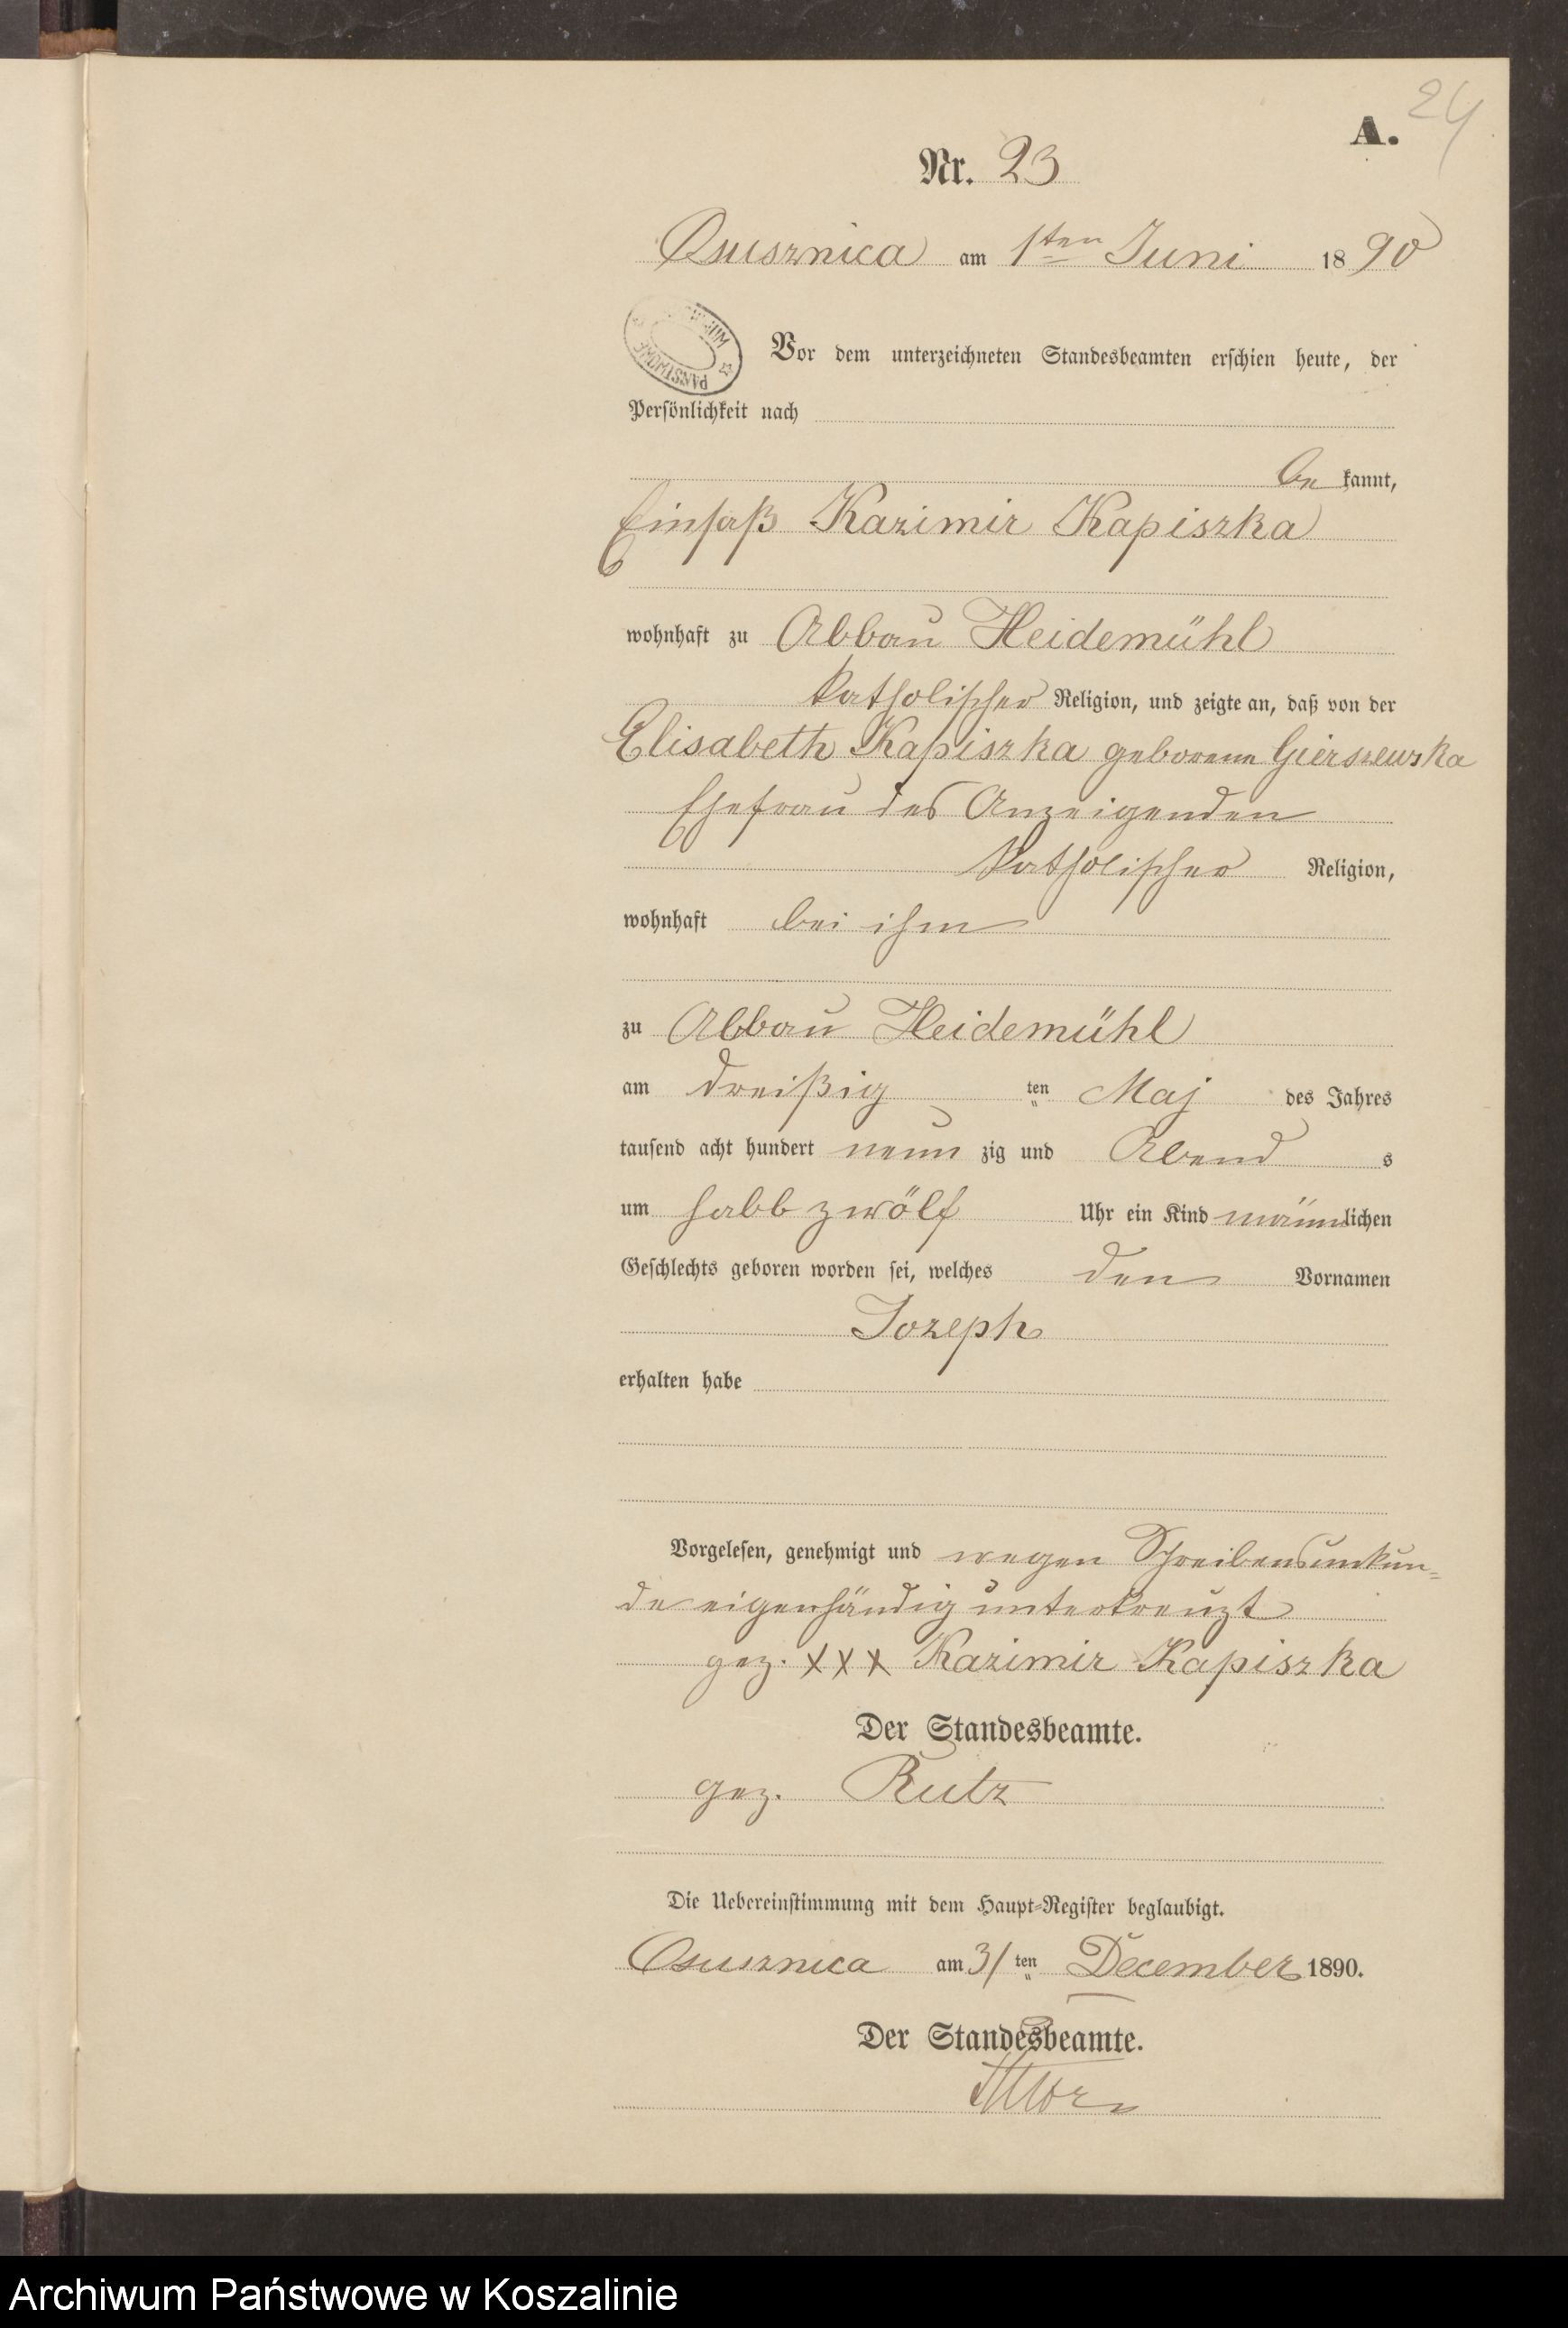 24
A.
Nr. 23
Osusznica am 1ten Juni 1890
PAŃSTWOWE
Vor dem unterzeichneten Standesbeamten erschien heute, der
Persönlichkeit nach
be kannt,
Einsaß Kazimir Kapiszka
wohnhaft zu Abbau Heidemühl
katholischer Religion, und zeigte an, daß von der
Elisabeth Kapiszka geborene Gierszewska
Ehefrau des Anzeigenden
katholischer Religion,
wohnhaft bei ihm
zu Abbau Heidemühl
am dreißig ten Maj des Jahres
tausend acht hundert neun zig und Abend s
um halb zwölf Uhr ein Kind männlichen
Geschlechts geboren worden sei, welches den Vornamen
Jozeph
erhalten habe
Vorgelesen, genehmigt und wegen Schreibensunkun=
de eigenhändig unterkreuzt
gez. XXX Kazimir Kapiszka
Der Standesbeamte.
gez. Rutz
Die Uebereinstimmung mit dem Haupt-Register beglaubigt.
Osusznica am 31 ten December 1890.
Der Standesbeamte.
Archiwum Państwowe w Koszalinie